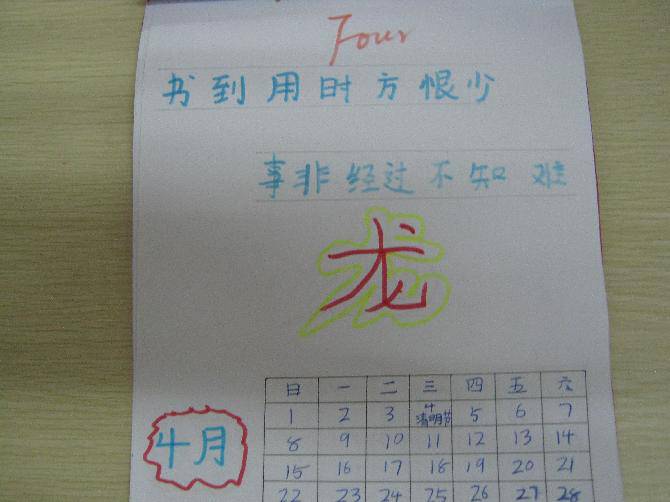 Four
书到用时方恨少
事非经过不知难
龙
日 一 二 三 四 五 六
1 2 3 4 清明节 5 6 7
8 9 10 11 12 13 14
15 16 17 18 19 20 21
22 23 24 25 26 27 28
4月